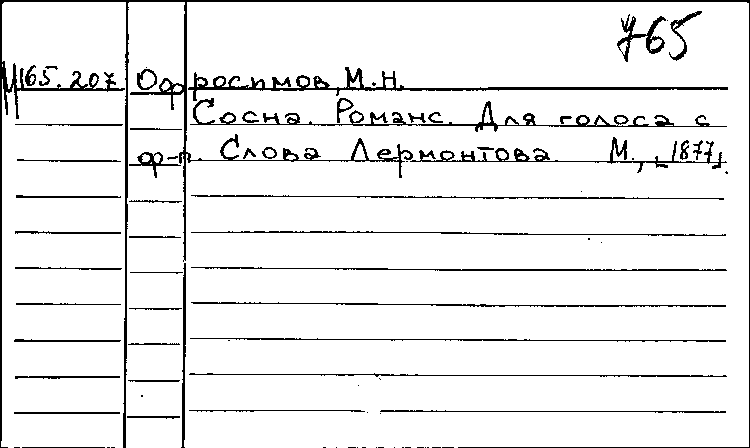 765
М165.207 Офросимов, М.Н.
Сосна. Романс. Для голоса с
ф-п. Слова Лермонтова М., [1877].